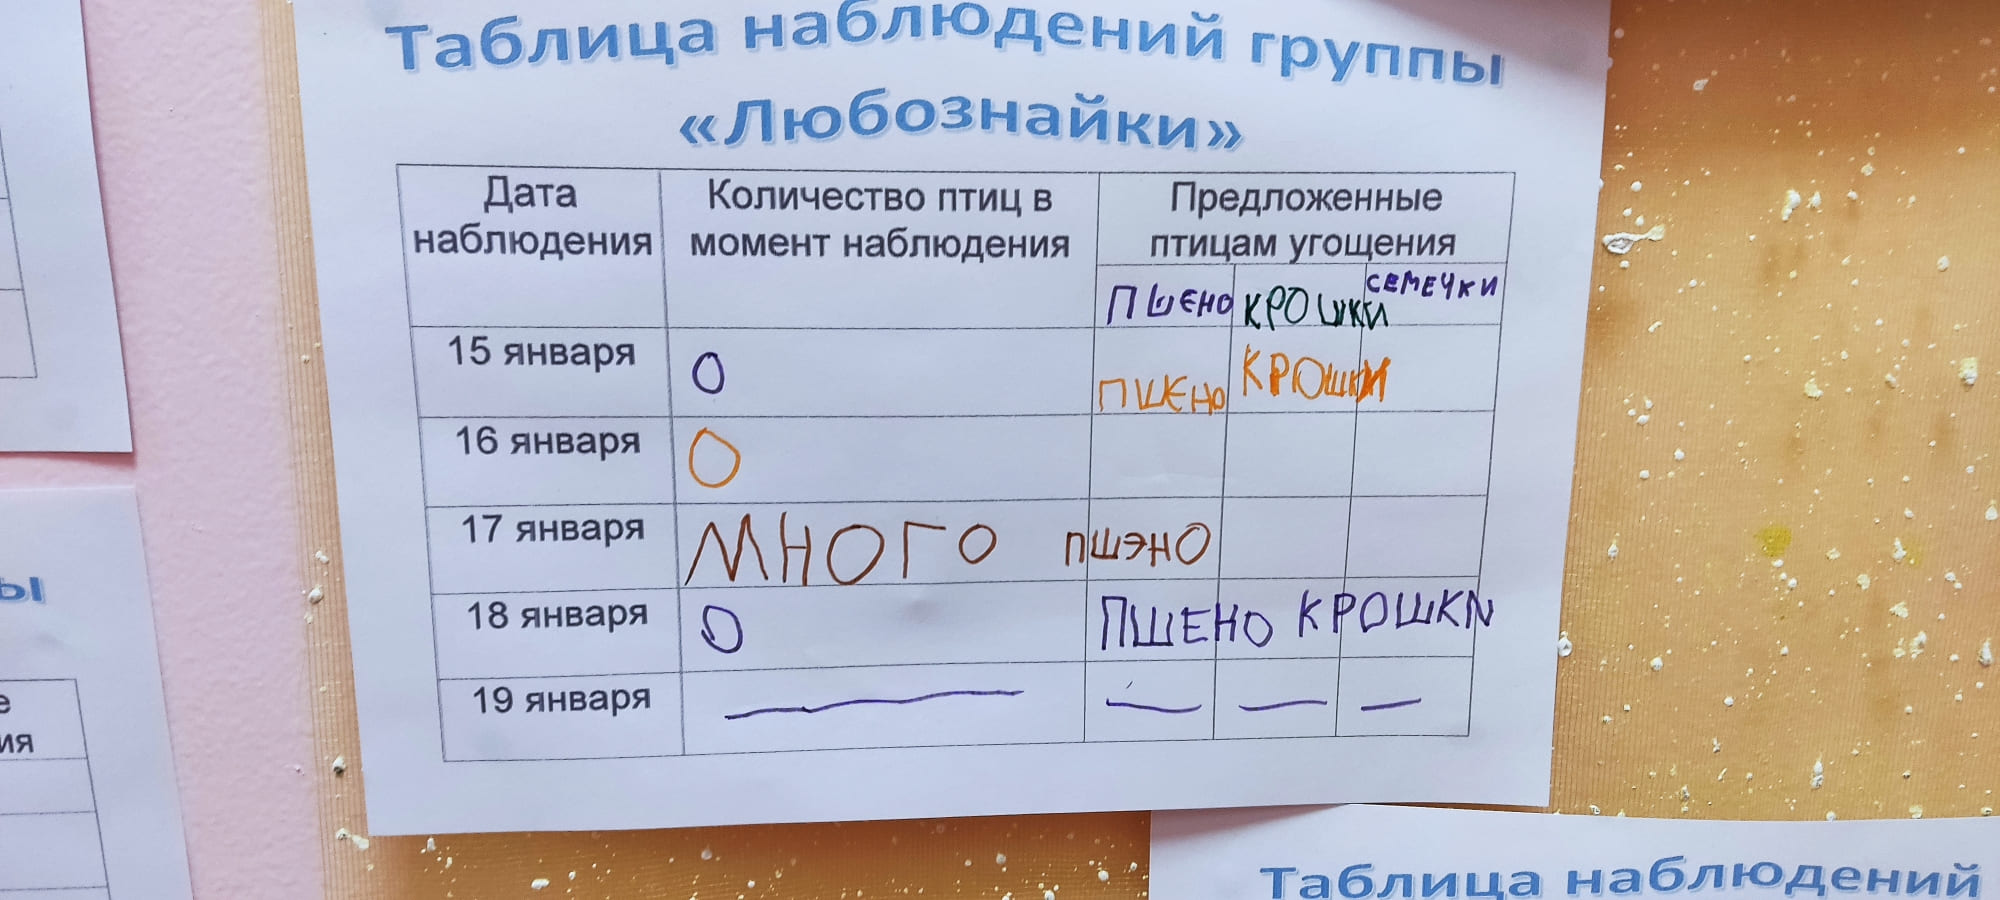 Таблица наблюдений группы
«Любознайки»
Дата наблюдения Количество птиц в момент наблюдения Предложенные птицам угощения
ПШЕНО КРОШКИ СЕМЕЧКИ
15 января 0 ПШЕНО КРОШКИ
16 января 0
17 января МНОГО ПШЭНО
18 января 0 ПШЕНО КРОШКИ
19 января — — — —
ы
е
ия
Таблица наблюдений